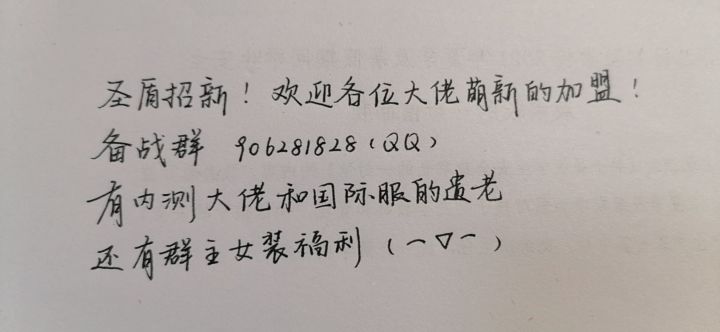 圣盾招新！欢迎各位大佬萌新的加盟！
备战群 906281828(QQ)
有内测大佬和国际服的遗老
还有群主女装福利(一▽一)